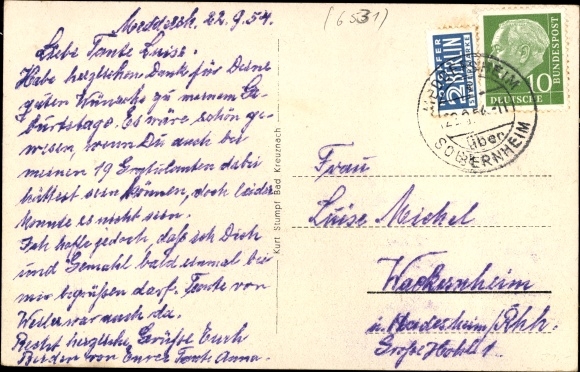 22.9.54.
(6531)
Liebe Tante Luise.
Habe herzlichen Dank für Deine
guten Wünsche zu meinem Ge-
burtstage. Es wäre schön ge-
wesen, wenn Du auch bei
meinen 19 Gratulanten dabei
hättest sein können, doch leider
konnte es nicht sein.
Ich hoffe jedoch, daß ich Dich
und Gemahl bald einmal bei
mir begrüßen darf. Tante von
Weiler war auch da.
Recht herzliche Grüße Euch
Beiden von Eurer Tante Anna.
Kurt Stumpf Bad Kreuznach
NOTOPFER
2 BERLIN
STEUERMARKE
DEUTSCHE
BUNDESPOST
10
über
SOBERNHEIM
Frau
Luise Michel
Wackernheim
ü. Heidesheim/Rhh.
Große Hohl 1